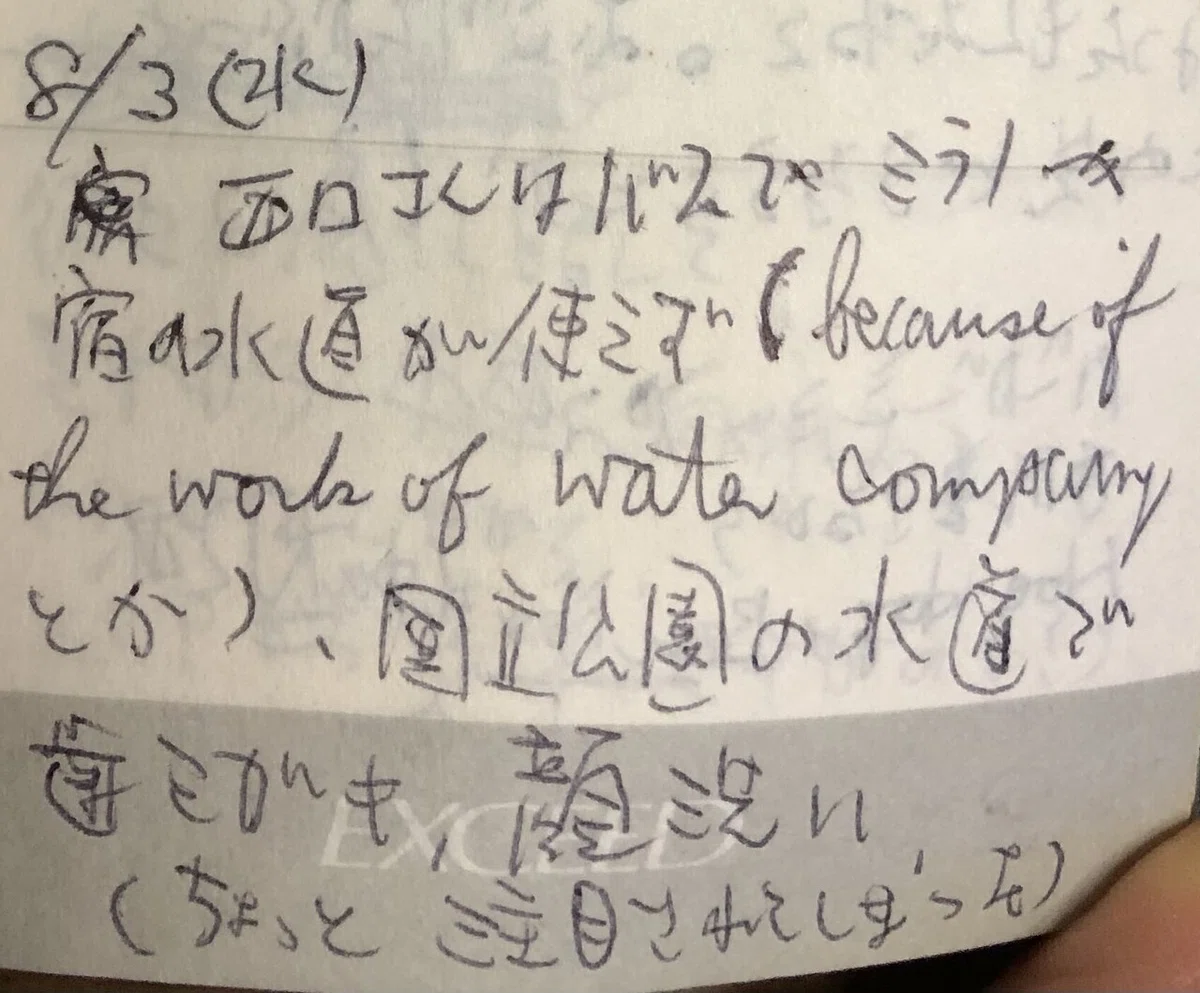 8/3 (水)
西口さんはバスで ミラノへ
宿の水道が使えず (because of
the work of water company
とか)、国立公園の水道で
歯みがき、顔洗い
(ちょっと 注目されてしまった)
EXCEED